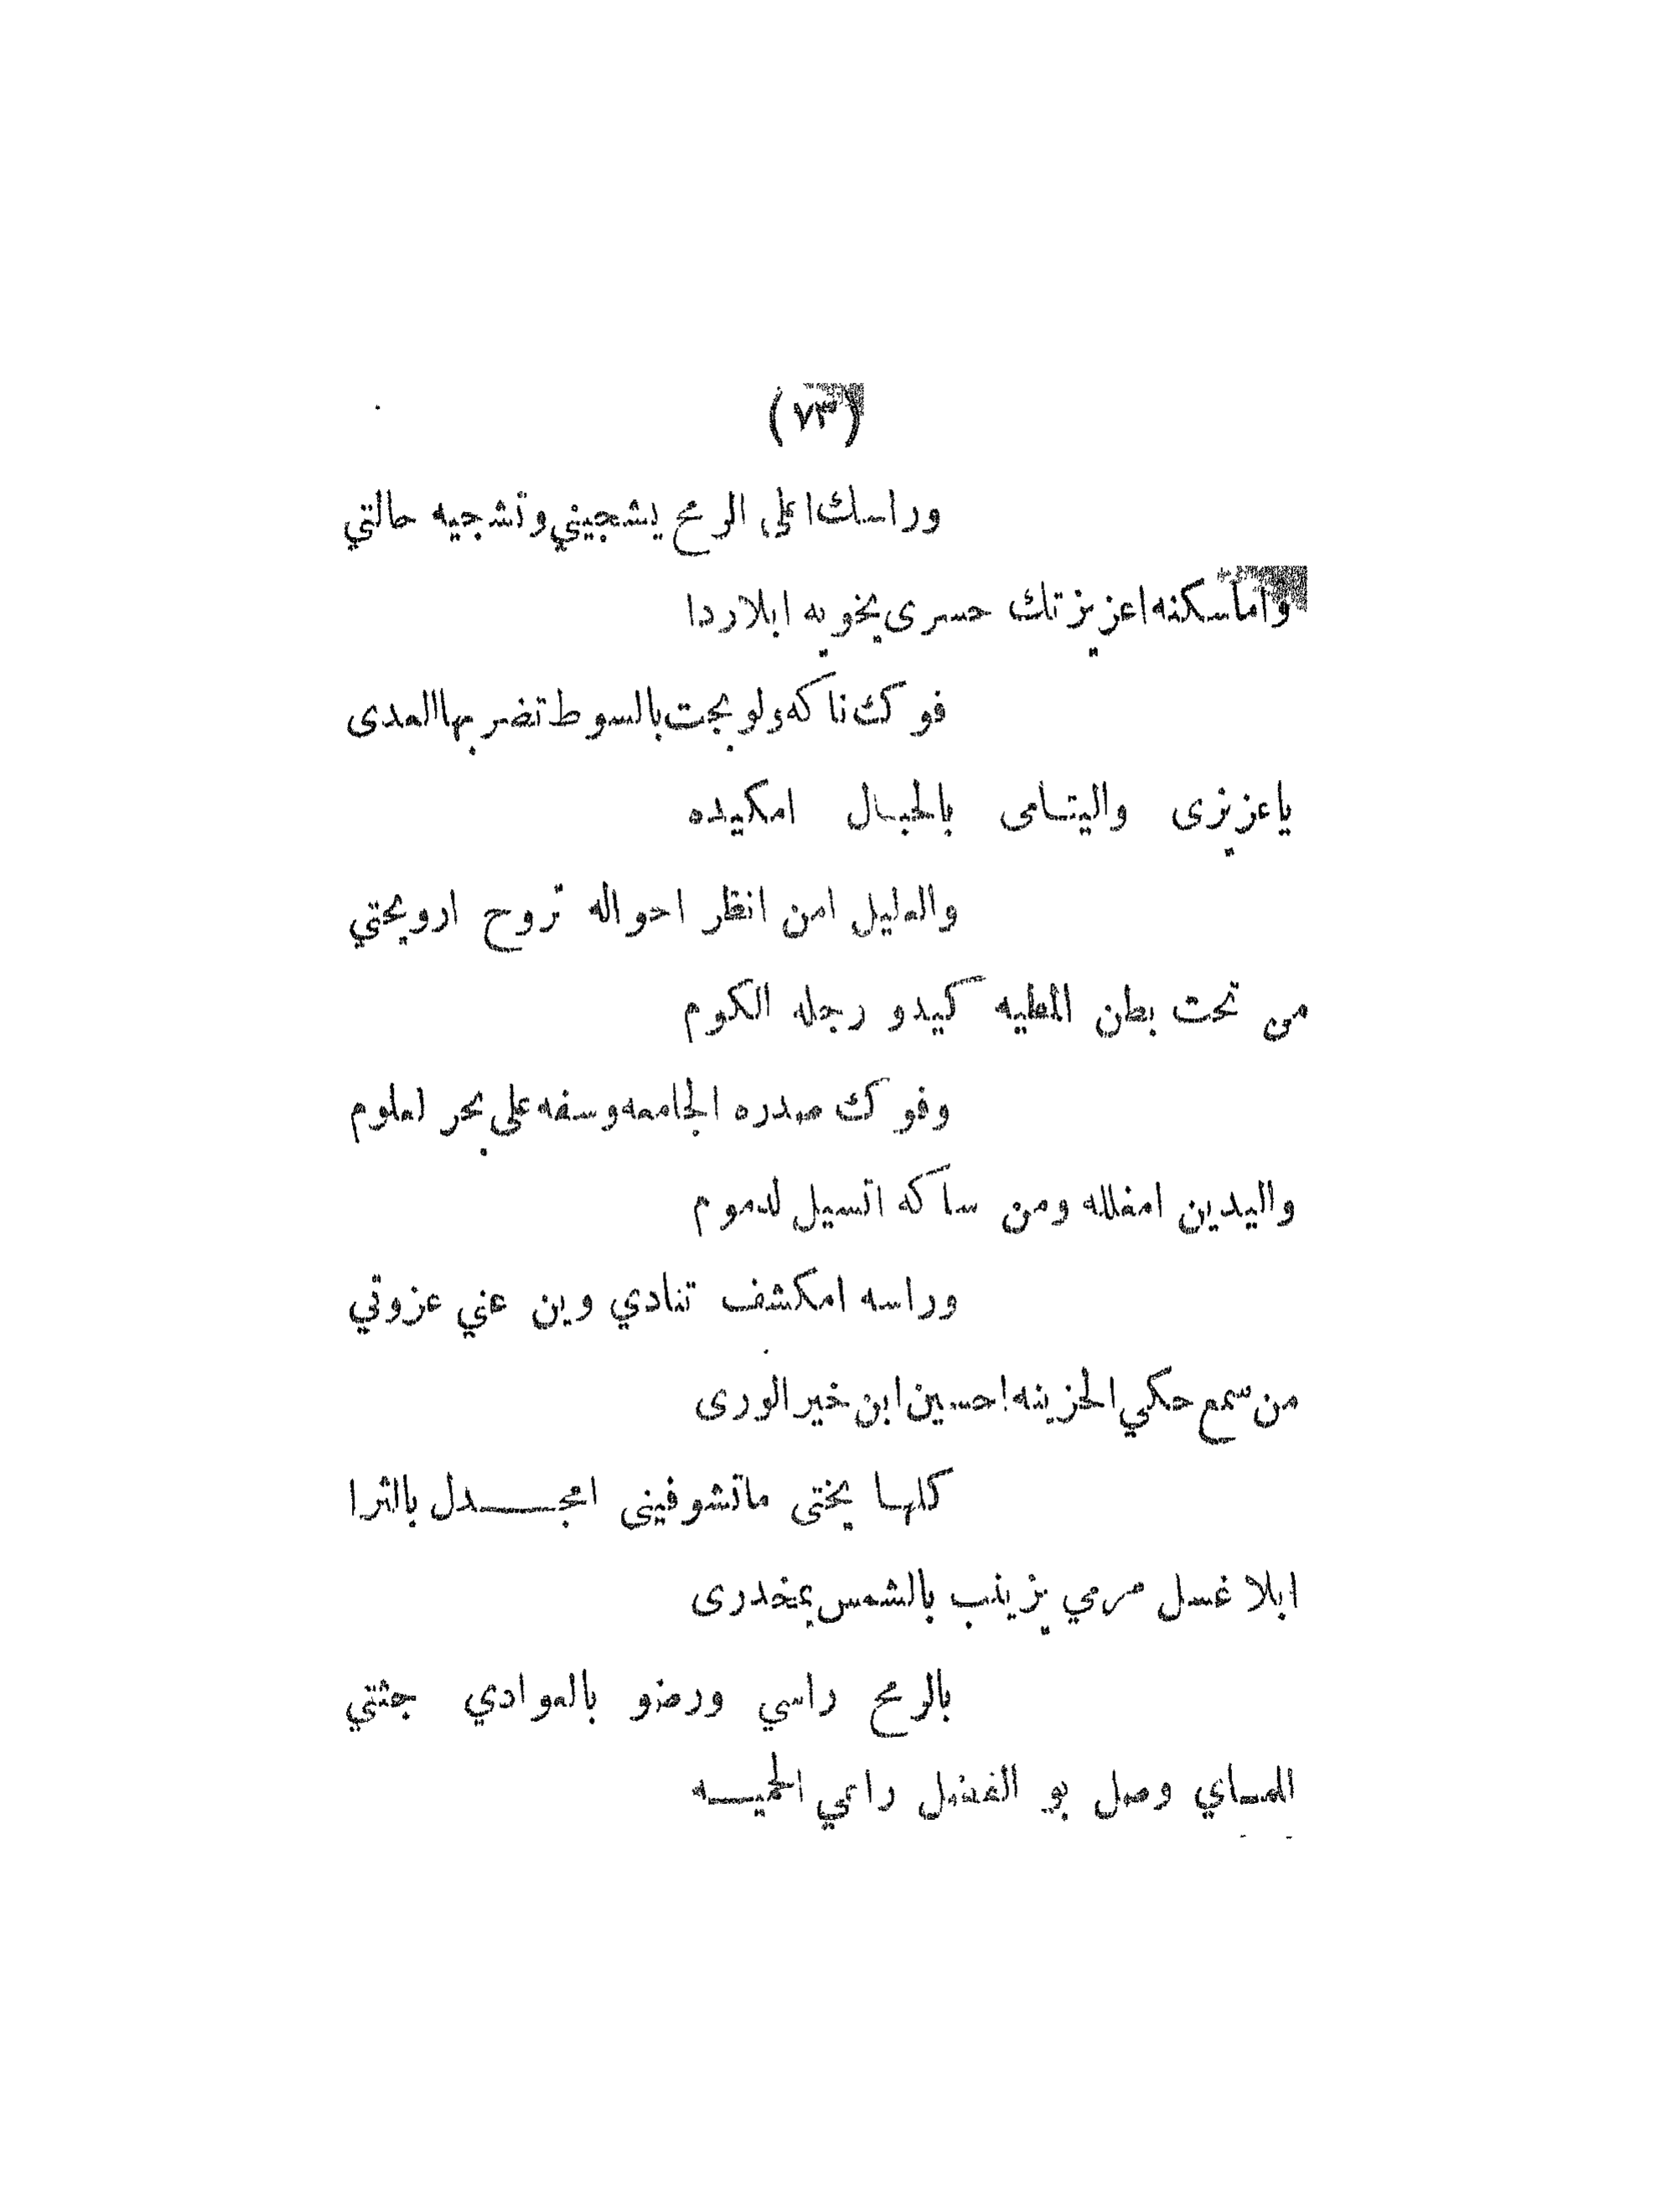 (٧٣)
وراسك اعلى الرمح يشجيني وتشجيه حالتي
واما سكنه اعزيزتك حسرى يخويه ابلاردا
فوك ناكه ولو بجت بالسوط تضربها العدى
ياعزيزى واليتامى بالحبال امكيده
والعليل امن انظر احواله تروح ارويحتي
من تحت بطن المطيه كيدو رجله الكوم
وفوك صدره الجامعه وسفه على بحر لعلوم
واليدين امغلله ومن ساكه اتسيل لدموم
وراسه امكشف تنادي وين عني عزوتي
من سمع حكي الحزينه احسين ابن خير الورى
كلها يختى ماتشوفينى امجدل بالثرا
ابلا غسل مرمي يزينب بالشمس يمخدرى
بالرمح راسي ورضو بالعوادي جثتي
المساي وصل بو الفضل راعي الحميه